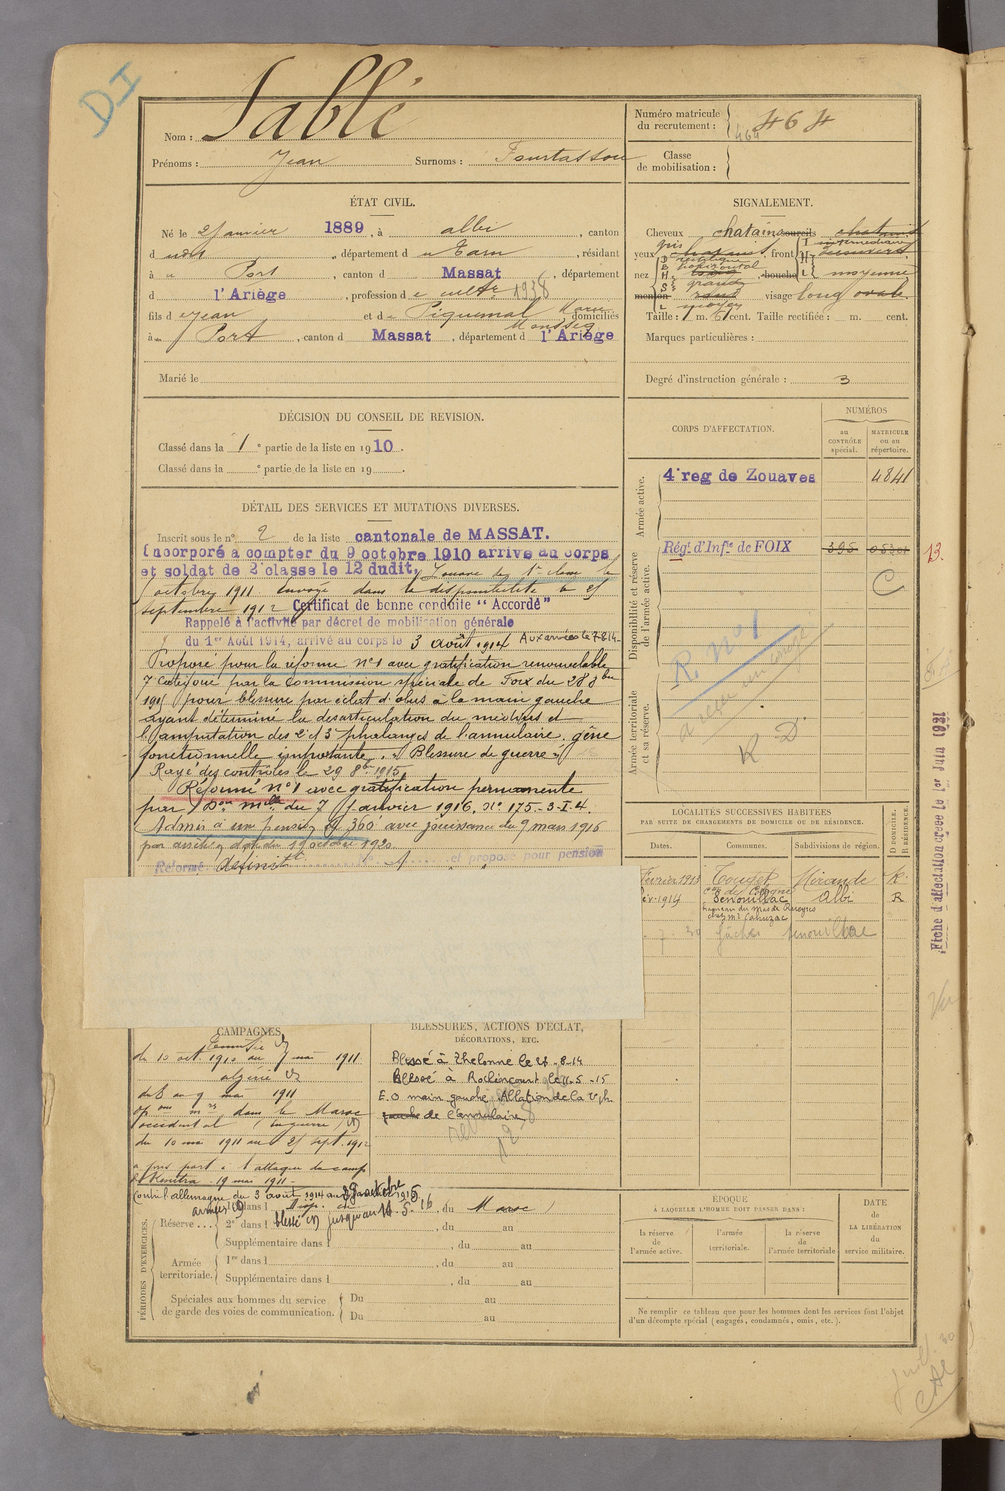 DI
Nom : Sablé
Prénoms : Jean Surnoms : Fourtassou
Numéro matricule du recrutement : 464
464
Classe de mobilisation :
ÉTAT CIVIL.
Né le 2 Janvier 1889, à albi, canton
d udit, département d u Tarn, résidant
à Port, canton d Massat, département
d l'Ariège, profession de cultr 1938
fils d e Jean et de Piquemal Marie domiciliés
à Port, canton d Massat, département d l'Ariège
Marié le
SIGNALEMENT.
Cheveux chatains sourcils
yeux gris, front
nez bouche moyenne
menton visage long ovale
Taille : 1 m. 61 cent. Taille rectifiée : m. cent.
Marques particulières :
Degré d'instruction générale : 3
DÉCISION DU CONSEIL DE REVISION.
Classé dans la 1e partie de la liste en 1910.
Classé dans la e partie de la liste en 19 .
CORPS D'AFFECTATION.
NUMÉROS
au CONTRÔLE spécial.
MATRICULE ou au répertoire.
Armée active.
4e reg de Zouaves 4841
Disponibilité et réserve de l'armée active.
Régt d'Infie de FOIX 395
C
R. n° 1
Armée territoriale et sa réserve.
R D.
DÉTAIL DES SERVICES ET MUTATIONS DIVERSES.
Inscrit sous le n° 2 de la liste cantonale de MASSAT.
Incorporé à compter du 9 octobre 1910 arrivé au corps
et soldat de 2e classe le 12 dudit, Zouave de 1re classe le
octobre 1911 Envoyé dans la disponibilité le
septembre 1912 Certificat de bonne conduite "Accordé"
Rappelé à l'activité par décret de mobilisation générale
du 1er Août 1914, arrivé au corps le 3 août 1914 Aux armées le 7-8-14
Proposé pour la réforme n°1 avec gratification renouvelable
7e catégorie par la Commission spéciale de Foix du 28 8bre
1915 pour blessure par éclat d'obus à la main gauche
ayant déterminé la désarticulation du médius et
l'amputation des 2e et 3e phalanges de l'annulaire, gêne
fonctionnelle importante. "Blessure de guerre"
Rayé des contrôles le 29 8bre 1915
Réformé n°1 avec gratification permanente
par Don mlle du 7 Janvier 1916, N° 175-3-I-4.
Admis à une pension de 360f avec jouissance du 9 mars 1916
par arrêté du 19 octobre 1920
Réformé définitt et proposé pour pension
LOCALITÉS SUCCESSIVES HABITÉES
PAR SUITE DE CHANGEMENTS DE DOMICILE OU DE RÉSIDENCE.
Dates. Communes. Subdivisions de région. D DOMICILE. R RÉSIDENCE.
février 1913 Touget Mirande R
con de Cologne
fév. 1914 Senouillac Albi R
chez Mr Cahuzac
Senouillac
CAMPAGNES.
Tunisie
du 10 oct. 1910 au 7 mai 1911
algérie
du 8 au 9 mai 1911
dans le Maroc
occidental (en guerre)
du 10 mai 1911 au 25 sept. 1912
a pris part à l'attaque du camp
de Kenitra 19 mai 1911
Contre l'allemagne du 3 août 1914 au
BLESSURES, ACTIONS D'ÉCLAT,
DÉCORATIONS, ETC.
Blessé à Thelonne le 28-8-14
Blessé à Roclincourt le 11-5-15
E.O main gauche, Ablation de la
gauche de l'annulaire
PÉRIODES D'EXERCICES.
Réserve... 1re dans l , du Maroc
2e dans l blessé jusqu'au , du au
Supplémentaire dans l , du au
Armée territoriale. 1re dans l , du au
Supplémentaire dans l , du au
Spéciales aux hommes du service de garde des voies de communication. Du au
Du au
ÉPOQUE
À LAQUELLE L'HOMME DOIT PASSER DANS :
la réserve de l'armée active.
l'armée territoriale.
la réserve de l'armée territoriale
DATE de LA LIBÉRATION du service militaire.
Ne remplir ce tableau que pour les hommes dont les services font l'objet
d'un décompte spécial (engagés, condamnés, omis, etc.).
13.
Fiche d'affectation créée le 1er Juin 1921